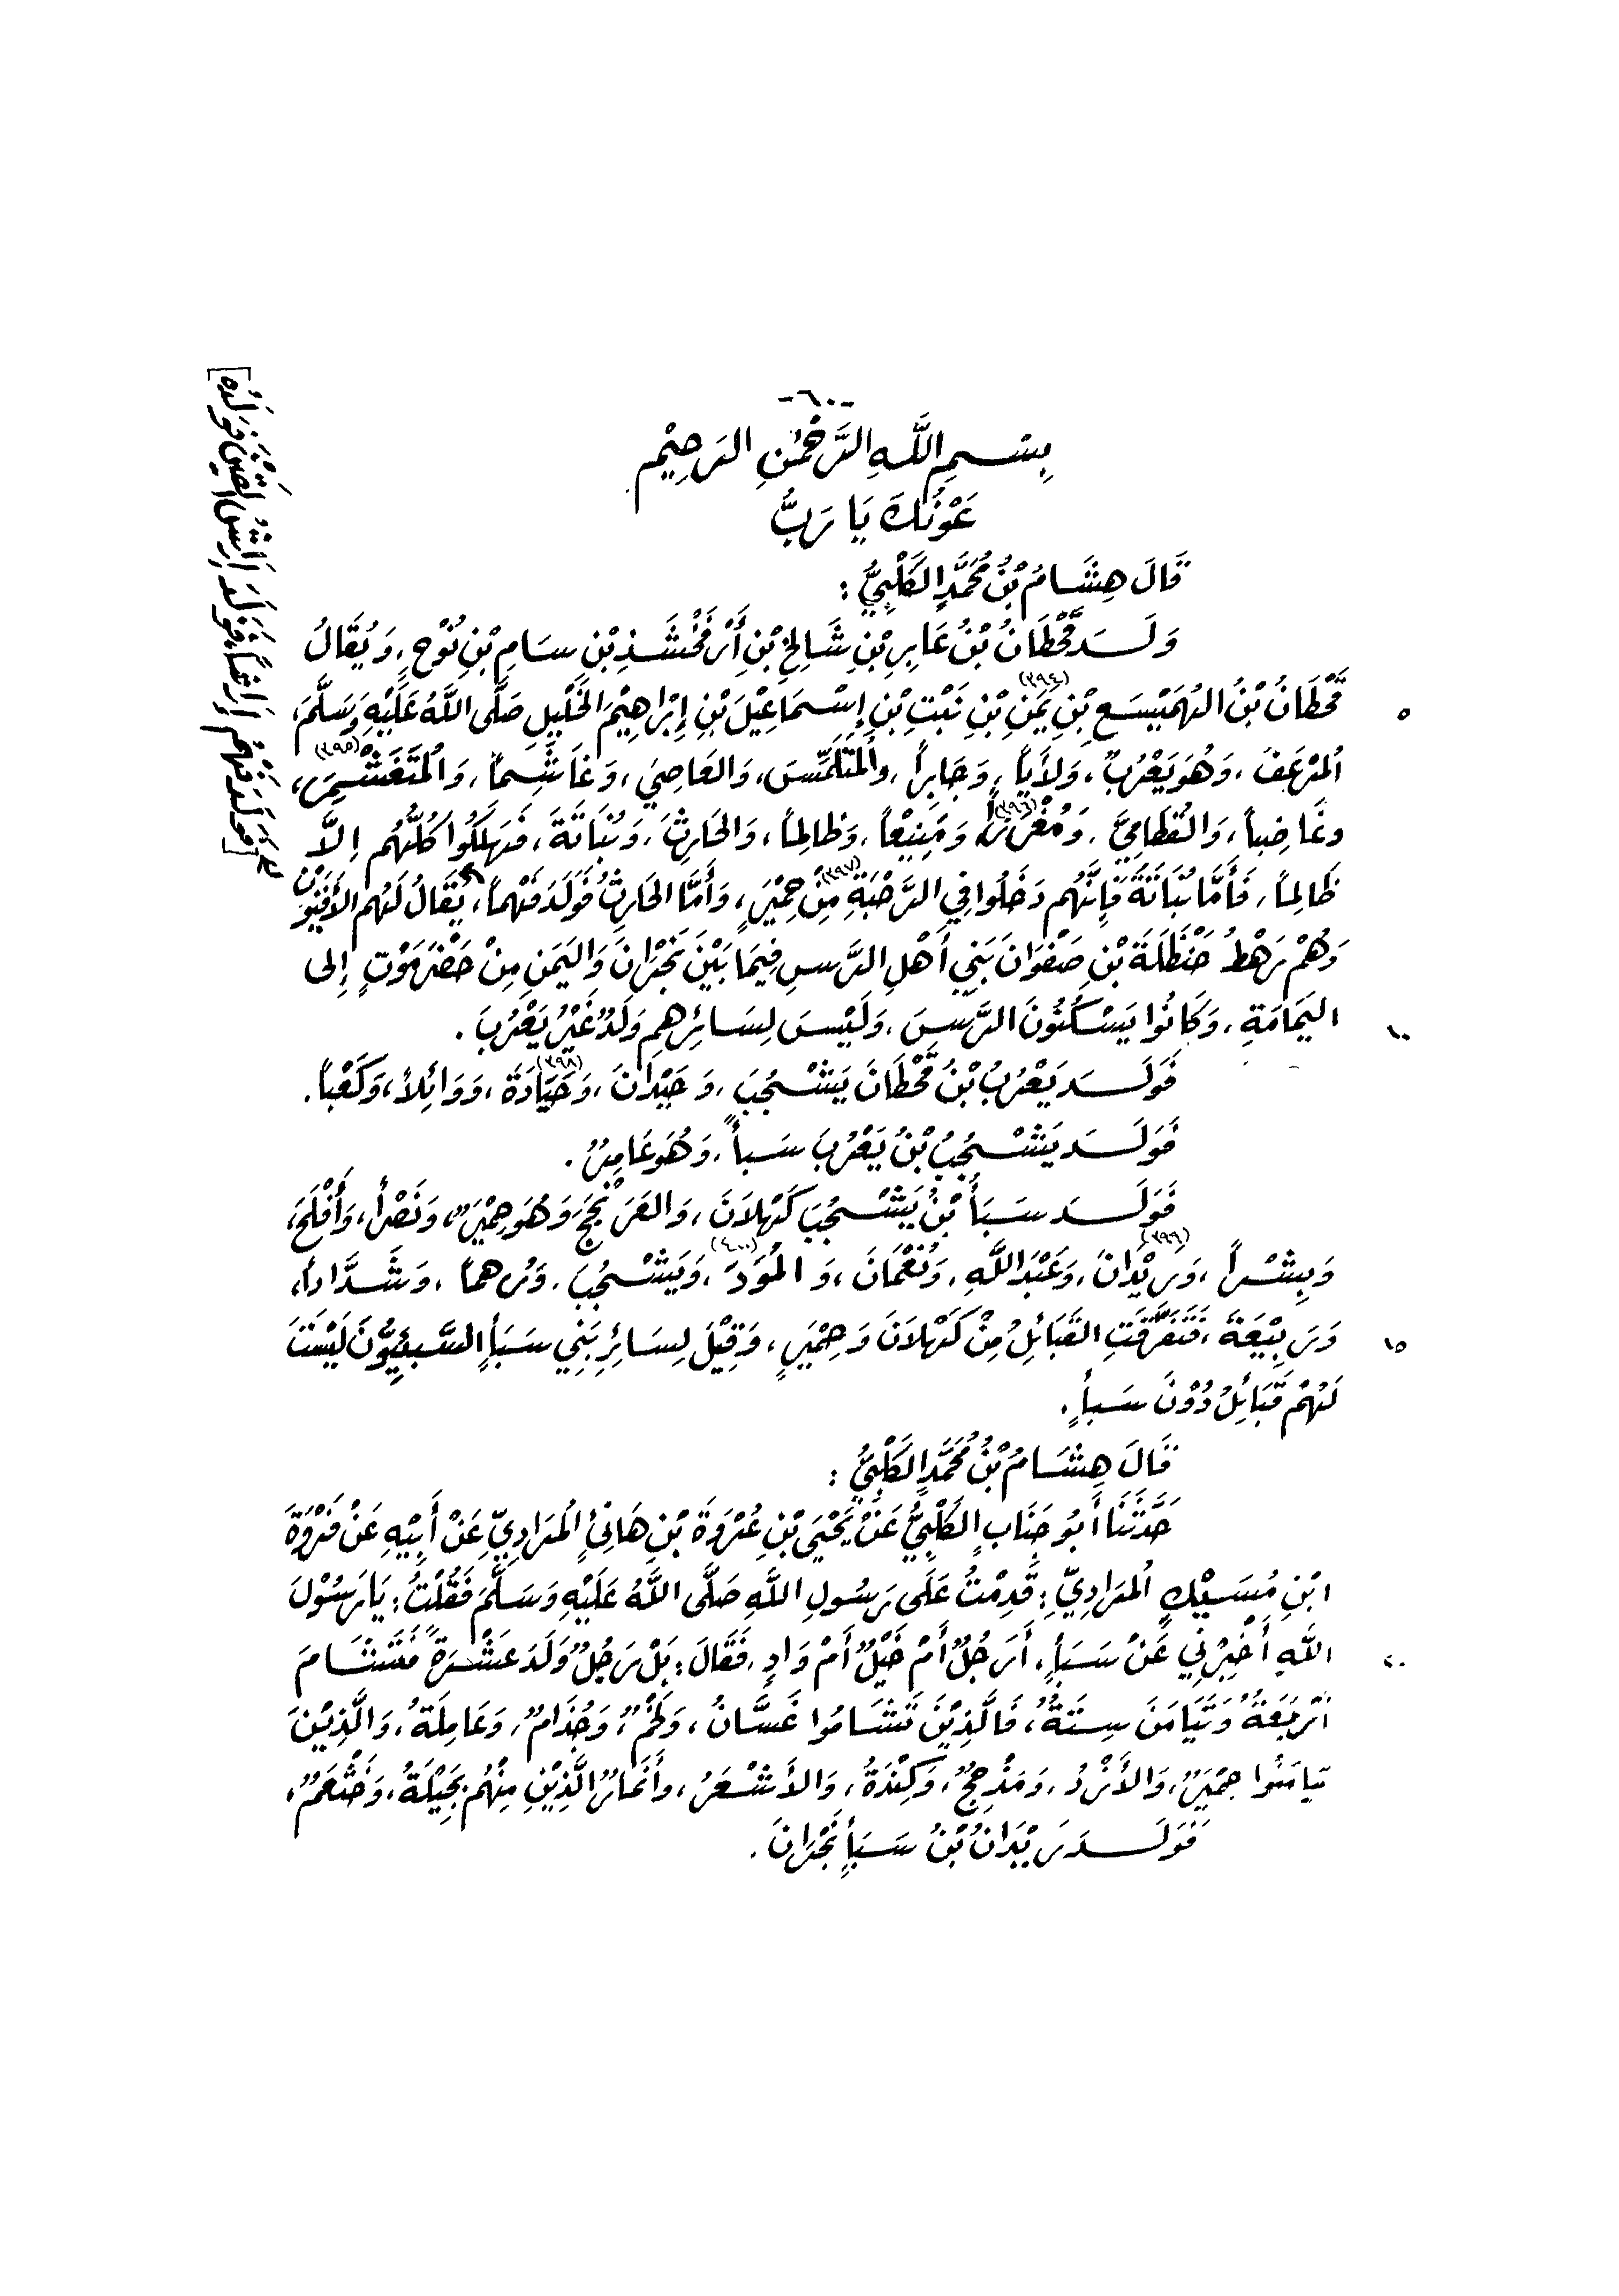 -٦٠-
بِسْمِ اللَّهِ الرَّحْمٰنِ الرَّحِيْمِ
عَوْنَكَ يَا رَبُّ
قَالَ هِشَامُ بْنُ مُحَمَّدٍ الكَلْبِيُّ :
وَلَـــدَ قَحْطَانُ بْنُ عَابِرِ بْنِ شَالِخِ بْنِ أَرْفَخْشَـذِ بْنِ سَامِ بْنِ نُوْحٍ ، وَيُقَالُ
قَحْطَانُ بْنُ الهُمَيْسَعِ بْنِ يَمَنِ (٣٩٤) بْنِ نَبْتِ بْنِ إِسْمَاعِيْلَ بْنِ إِبْرَاهِيْمَ الخَلِيْلِ صَلَّى اللَّهُ عَلَيْهِ وَسَلَّمَ، ٥
المُرْعِفَ ، وَهُوَ يَعْرُبُ ، وَلَأْياً ، وَجَابِراً ، والمُتَلَمِّسَ ، وَالعَاصِيَ ، وَغَاشِماً ، وَالمُتَغَشْمِرَ (٣٩٥) ،
وغَاضِباً ، وَالقُطَامِيَّ ، وَمُغْرِزاً (٣٩٦) وَمَنِيْعاً ، وَظَالِماً ، وَالحَارِثَ ، وَنُبَاتَةَ ، فَهَلَكُوا كُلُّهُم إلَّا
ظَالِماً ، فَأَمَّا نُبَاتَةُ فَإِنَّهُم دَخَلُوا فِي الرَّحْبَةِ (٣٩٧) مِنْ حِمْيَرٍ ، وَأَمَّا الحَارِثُ فَوَلَدَ فَهْماً ، يُقَالُ لَهُم الأَقْيُوْنُ
وَهُمْ رَهْطُ حَنْظَلَةَ بْنِ صَفْوَانَ بَنِي أَهْلِ الرَّسِ فِيمَا بَيْنَ نَجْرَانَ وَاليَمَنِ مِنْ حَضْرَمَوْتٍ إلى
اليَمَامَةِ ، وَكَانُوا يَسْكُنُونَ الرَّسَ ، وَلَيْسَ لِسَائِرِهِم وَلَدٌ غَيْرُ يَعْرُبَ . ١٠
فَوَلَـــدَ يَعْرُبُ بْنُ قَحْطَانَ يَشْجُبَ ، وَحَيْدَانَ ، وَحَيَادَةَ (٣٩٨) ، وَوَائِلاً ، وَكَعْباً .
فَوَلَـــدَ يَشْجُبُ بْنُ يَعْرُبَ سَبأً ، وَهُوَ عَامِرٌ .
فَوَلَـــدَ سَبَأُ بْنُ يَشْجُبَ كَهْلَانَ ، وَالعَرَنْجَجَ وَهُوَ حِمْيَرٌ ، وَنَصْراً ، وَأَفْلَحَ ،
وَبِشْراً ، وَرَيْدَانَ (٣٩٩) ، وَعَبْدَ اللَّهِ ، وَنُعْمَانَ ، وَالمُوَدَ (٤٠٠) ، وَيَشْجُبَ ، وَرُهماً ، وَشَدَّاداً ،
وَرَبِيْعَةَ ، فَتَفَرَّقَتِ القَبَائِلُ مِنْ كَهْلَانَ وَحِمْيَرٍ ، وَقِيْلَ لِسَائِرِ بَنِي سَبَأٍ السَّبئيُّونَ لَيْسَتَ ١٥
لَهُمْ قَبَائِلُ دُوْنَ سَبأٍ .
قَالَ هِشَامُ بْنُ مُحَمَّدٍ الكَلْبِيُّ :
حَدَّثَنَا أَبُو جَنَابٍ الكَلْبِيُّ عَنْ يَحْيَى بْنِ عُرْوَةَ بْنِ هَانِئٍ المُرَادِيِّ عَنْ أَبِيْهِ عَنْ فَرْوَةَ
ابْنِ مُسَيْكٍ المُرَادِيِّ : قَدِمْتُ عَلَى رَسُولِ اللَّهِ صَلَّى اللَّهُ عَلَيْهِ وَسَلَّمَ فَقُلْتُ : يَا رَسُوْلَ
اللَّهِ أَخْبِرْنِي عَنْ سَبَأٍ ، أَرَجُلٌ أَمْ جَبَلٌ أَمْ وَادٍ ، فَقَالَ : بَلْ رَجُلٌ وَلَدَ عَشْرَةً فَتَشَـامَ ٢٠
أَرْبَعَةٌ وَتَيَامَنَ سِتَةٌ ، فَالَّذِيْنَ تَشَامُوا غَسَّانُ ، وَلَخْمٌ ، وَجُذَامٌ ، وَعَامِلَةُ ، وَالَّذِيْنَ
تيامَنُوا حِمْيَرٌ ، وَالأَزْدُ ، وَمَذْحِجٌ ، وَكِنْدَةُ ، وَالأَشْعَرُ ، وأَنْمَارٌ الَّذِيْنِ مِنْهُم بَجِيْلَةُ ، وَخَثْعَمٌ ،
فَوَلَـــدَ رَيْدَانُ بْنُ سَبَأٍ نَجْرَانَ .